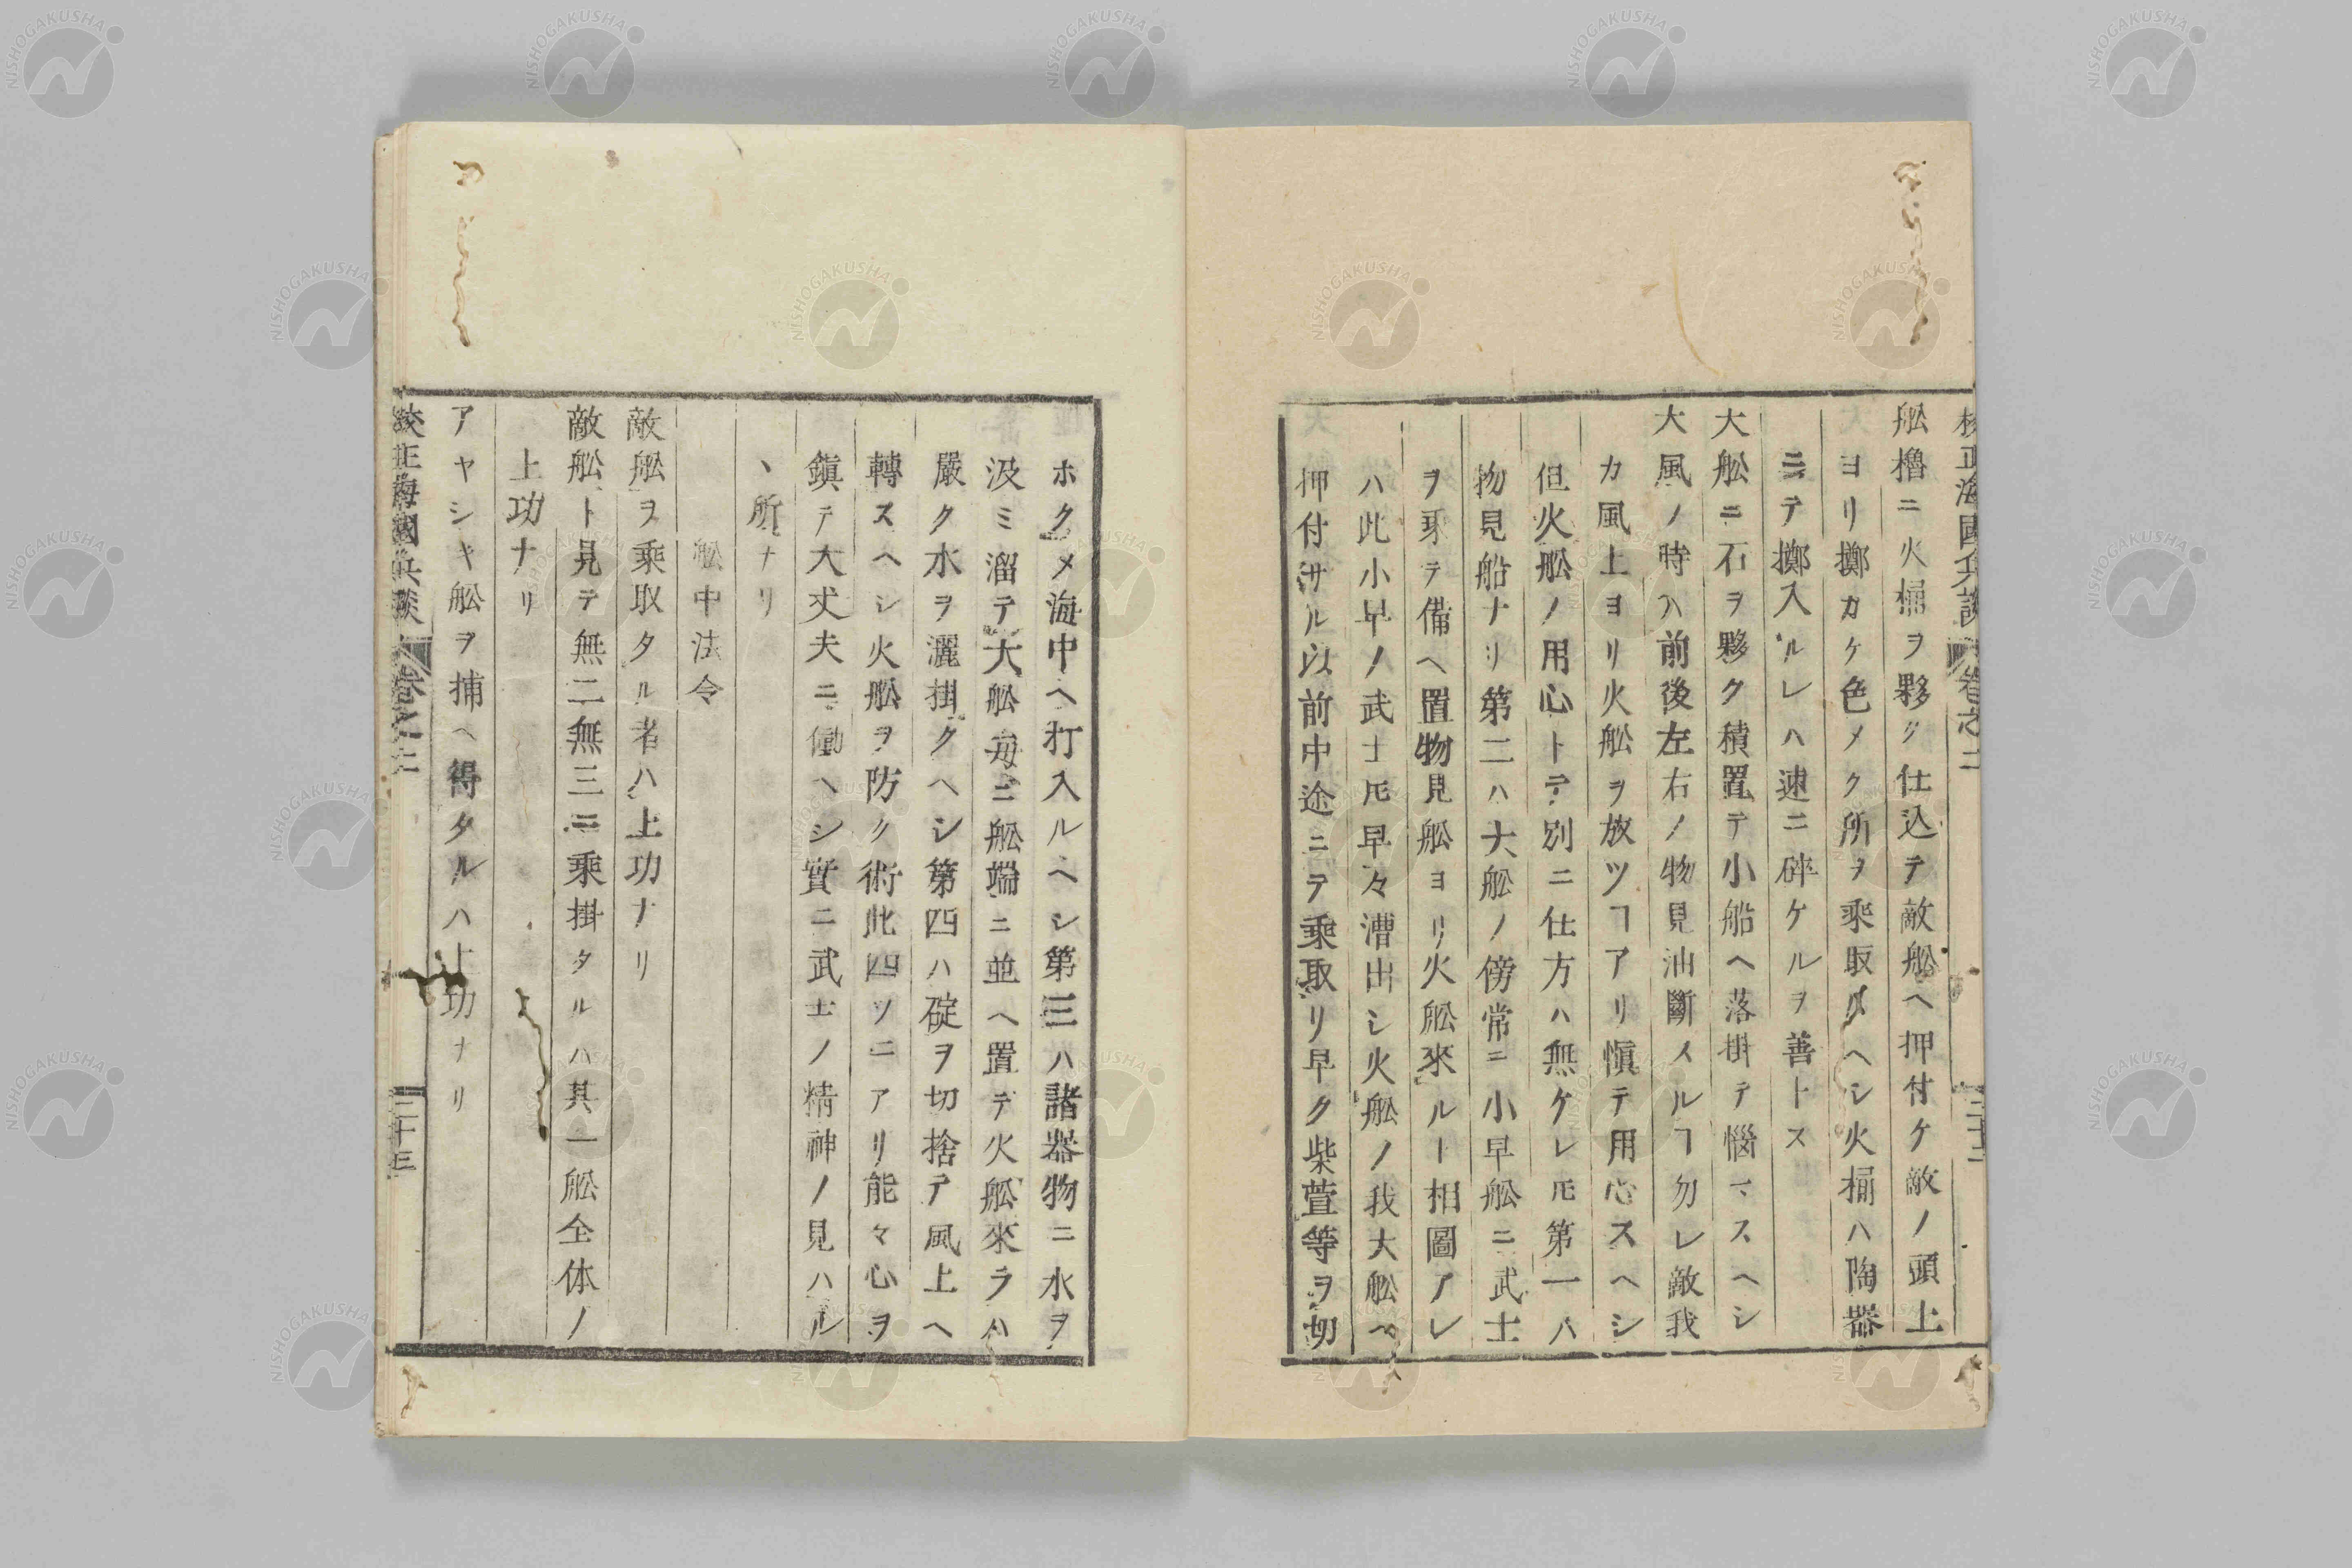 校正海國兵談 卷之二 二十二
舩櫓ニ火桶ヲ夥ク仕込テ敵舩ヘ押付ケ敵ノ頭上
ヨリ擲カケ色メク所ヲ乘取ルヘシ火桶ハ陶器
ニテ擲入ルレハ速ニ碎ケルヲ善トス
大舩ニ石ヲ夥ク積置テ小船ヘ落掛テ惱マスヘシ
大風ノ時ハ前後左右ノ物見油斷スルヿ勿レ敵我
カ風上ヨリ火舩ヲ放ツヿアリ愼テ用心スヘシ
但火舩ノ用心トテ別ニ仕方ハ無ケレ𪜈第一ハ
物見船ナリ第二ハ大舩ノ傍常ニ小早舩ニ武士
ヲ乘テ備ヘ置物見舩ヨリ火舩來ルト相圖アレ
ハ此小早ノ武士𪜈早々漕出シ火舩ノ我大舩ヘ
押付サル以前中途ニテ乘取リ早ク柴萱等ヲ切
ホクメ海中ヘ打入ルヘシ第三ハ諸器物ニ水ヲ
汲ミ溜テ大舩毎ニ舩端ニ並ヘ置テ火舩來ラハ
嚴ク水ヲ灑掛クヘシ第四ハ碇ヲ切捨テ風上ヘ
轉スヘシ火舩ヲ防ク術此四ツニアリ能々心ヲ
鎭テ大丈夫ニ働ヘシ實ニ武士ノ精神ノ見ハル
丶所ナリ
舩中法令
敵舩ヲ乘取タル者ハ上功ナリ
敵舩ト見テ無二無三ニ乘掛タルハ其一舩全体ノ
上功ナリ
アヤシキ舩ヲ捕ヘ得タルハ上功ナリ
校正海國兵談 卷之二 二十三